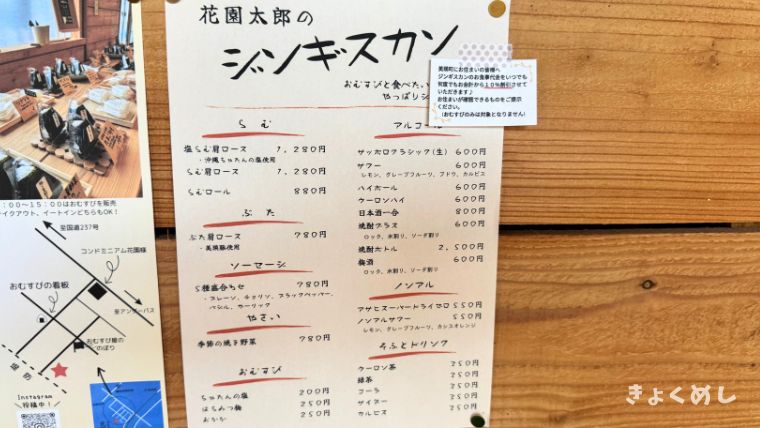 花園太郎の
ジンギスカン
おむすびと食べた
やっぱり
美瑛町にお住まいの皆様へ
ジンギスカンのお食事代金をいつでも
何度でもお会計から10%割引させて
いただきます♪
お住まいが確認できるものをご提示
ください。
(おむすびのみは対象となりません)
らむ
塩らむ肩ロース 1,280円
・沖縄ちゅたんの塩使用
らむ肩ロース 1,280円
らむロール 880円
ぶた
ぶた肩ロース 780円
・美瑛豚使用
ソーセージ
5種盛合わせ 780円
・プレーン、チョリソ、ブラックペッパー、
バジル、ガーリック
やさい
季節の焼き野菜 780円
おむすび
ちゅたんの塩 200円
はちみつ梅 250円
おかか 250円
アルコール
サッポロクラシック(生) 600円
サワー 600円
レモン、グレープフルーツ、ブドウ、カルピス
ハイボール 600円
ウーロンハイ 600円
日本酒一合 800円
焼酎グラス 600円
ロック、水割り、ソーダ割り
焼酎ボトル 2,500円
梅酒 600円
ロック、水割り、ソーダ割り
ノンアル
アサヒスーパードライゼロ 550円
ノンアルサワー 550円
レモン、グレープフルーツ、カシスオレンジ
そふとドリンク
ウーロン茶 250円
緑茶 250円
コーラ 250円
サイダー 250円
カルピス 250円
:00〜15:00はおむすびを販売
テイクアウト、イートインどちらもOK!
至国道237号
コンドミニアム花園様
おむすびの看板
至アンダーパス
おむすび屋の
のぼり
堤防
Instagram
投稿中!
きょくめし